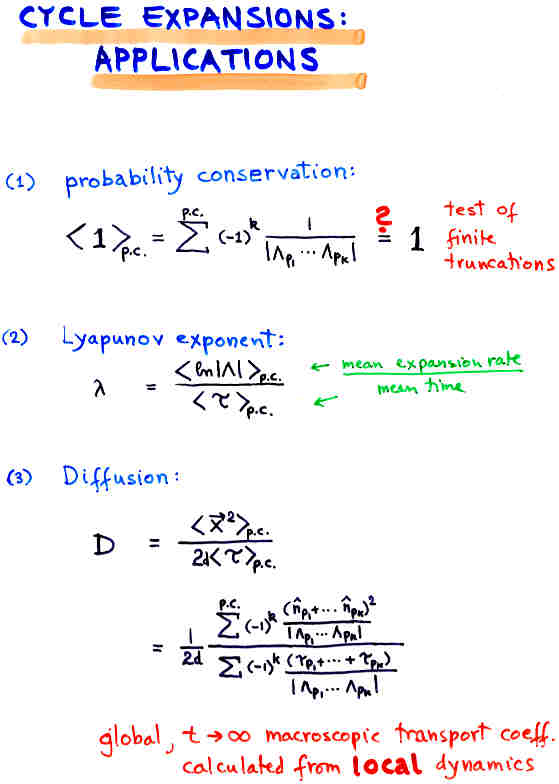 CYCLE EXPANSIONS:
APPLICATIONS
(1) probability conservation:
<1>p.c. = Σ^p.c. (-1)^k 1/|Λp₁ ⋯ Λpk| ≟ 1 test of finite truncations
(2) Lyapunov exponent:
λ = <ln|Λ|>p.c. / <τ>p.c. ← mean expansion rate / ← mean time
(3) Diffusion:
D = <x⃗²>p.c. / 2d<τ>p.c.
= 1/2d Σ^p.c. (-1)^k (n̂p₁+⋯ n̂pk)²/|Λp₁⋯ Λpk| / Σ (-1)^k (τp₁+⋯+τpk)/|Λp₁⋯ Λpk|
global, t→∞ macroscopic transport coeff.
calculated from local dynamics